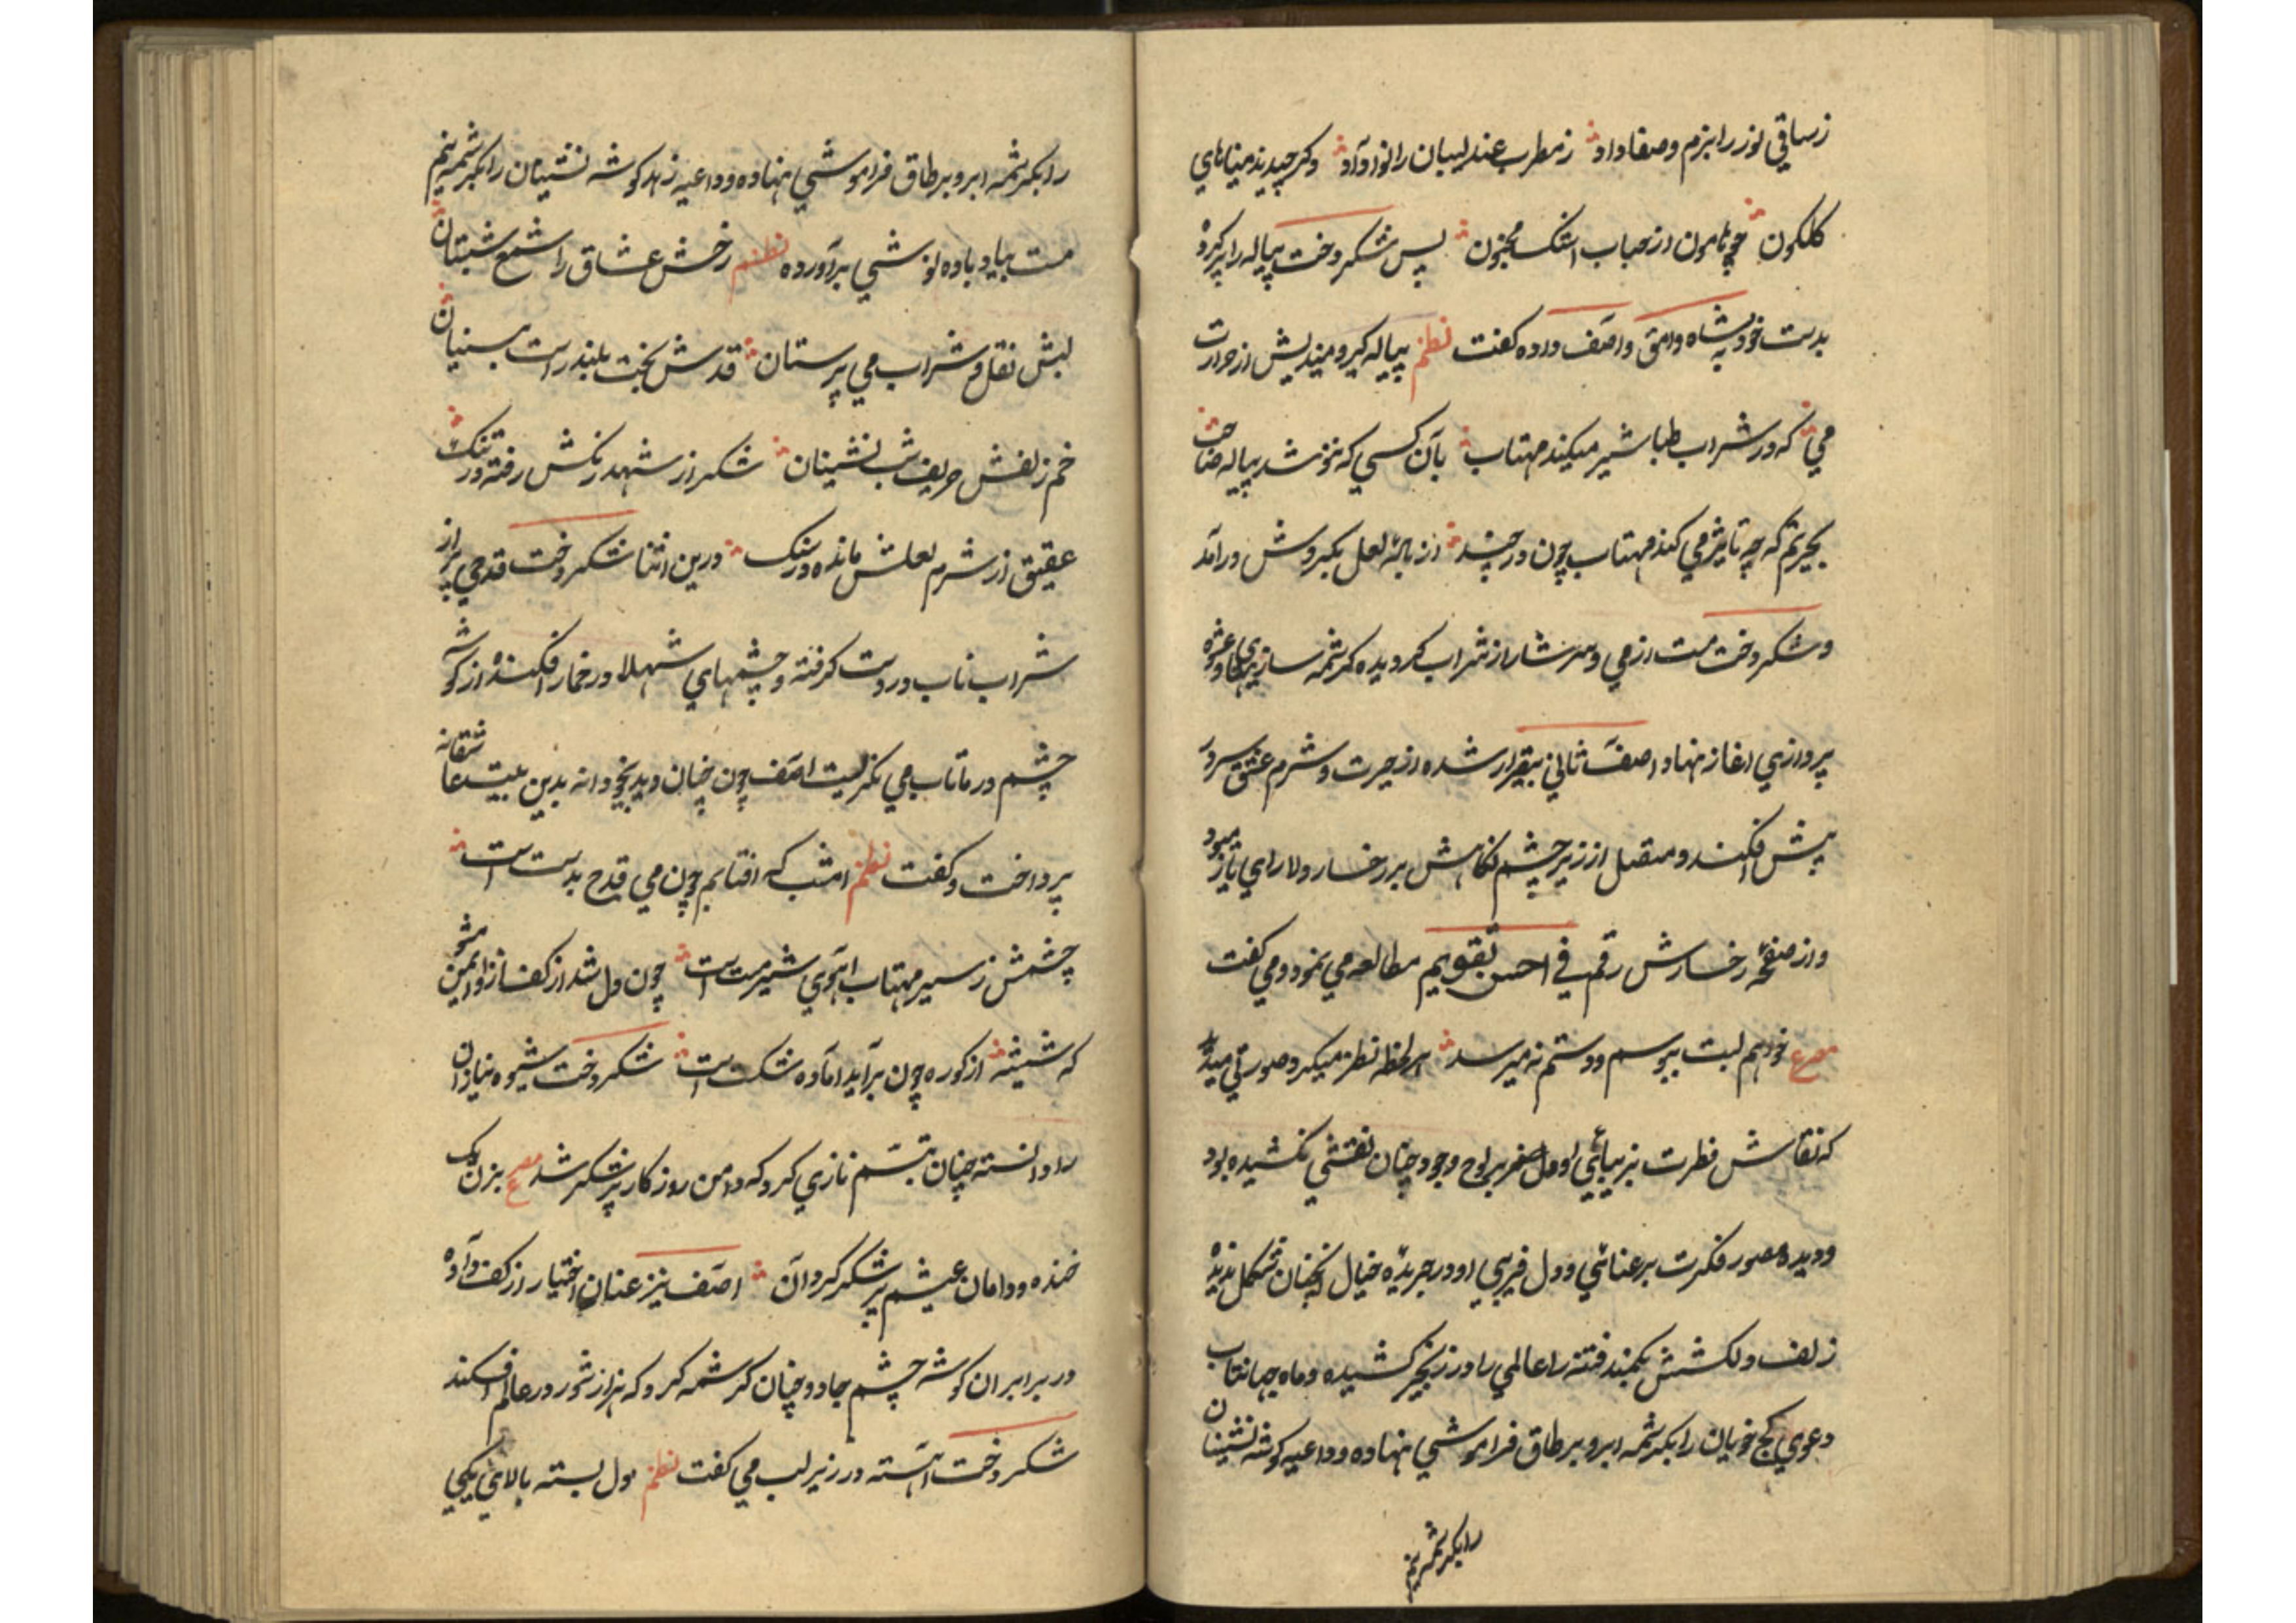 زساقي نوز را بزم وصفا داد ز مطرب عندلیبان را نوا داد دکر چیدند میناهاي
کلکون چو هامون از حباب اشک مجنون پس شکردخت پیاله را پر کرده
بدست خود به شاه وامق و اصف داده کفت نظم پیاله کیر و میندیش از حرارت
مي که در شراب طباشیر میکند مهتاب بآن کسي که ننوشد پیاله
بحیرتم که چه تاثیر مي کند مهتاب چون در چند از باله لعل یکبر وش درآمد
و شکردخت مست از مي و سرشار از شراب کردیده کرشمه سازیها و عشوه
پردازي اغاز نهاد اصف ثاني بیقرار شده از حیرت و شرم عشق سر در
پیش افکند و مقبل از زیر چشم نکاهش بر رخسار دلاراي باز میبود
و از صفحه رخسارش رقم في احسن تقویم مطالعه مي نمود و مي کفت
مصرع خواهم لبت ببوسم و دستم نمیرسد هر لحظه نظر میکرد و صورتي میدید
که نقاش فطرت بزیبائي او دل صفر بر لوح وجود چنان نقشي نکشیده بود
و دیده مصور فکرت برعنائي و دل فریبي او در جریده خیال انچنان شکل ندیده
زلف دلکشش بکمند فتنه را عالمي را در زنجیر کشیده و ماه جهانتاب
دعوي کج خوبان را بکرشمه ابرو بر طاق فراموشي نهاده و داعیه کوشه نشینان
را بکرشمه نیم
را بکرشمه ابرو بر طاق فراموشي نهاده و داعیه زهد کوشه نشینان را بکرشمه نیم
مست بیاد باده نوشي برآورده نظم رخش عشاق را شمع شبستان
لبش نقل و شراب مي پرستان قدش نخت بلند راست بینان
خم زلفش حریف شب نشینان شکر از شهد رنکش رفته در تنک
عقیق از شرم لعلش مانده در سنک درین اثنا شکردخت قدحي پر از
شراب ناب در دست کرفته و چشمهاي شهلا در خمار افکنده از کوشه
چشم در ماتاب مي نکریست اصف چون چنان دید بیخودانه بدین بیت عاشقانه
پرداخت و کفت نظم امشب که افتابم چون مي قدح بدست است
چشمش ز سیر مهتاب اهوي شیرمست است چون دل شد از کف از و ایمن مشو
که شیشه از کوره چون برآید اماده شکست است شکردخت شیوه بنیادان
را دانسته چنان تبسم نازي کرد که دامن روزکار پر شکر شد مصرع بزن یک
خنده و دامان عیشم پر شکر کردان اصف نیز عنان اختیار از کف داده
در برابر ان کوشه چشم جادو چنان کرشمه کرد که هزار شور در عالم افکند
شکردخت اهسته در زیر لب مي کفت نظم دل بسته بالاي یکي